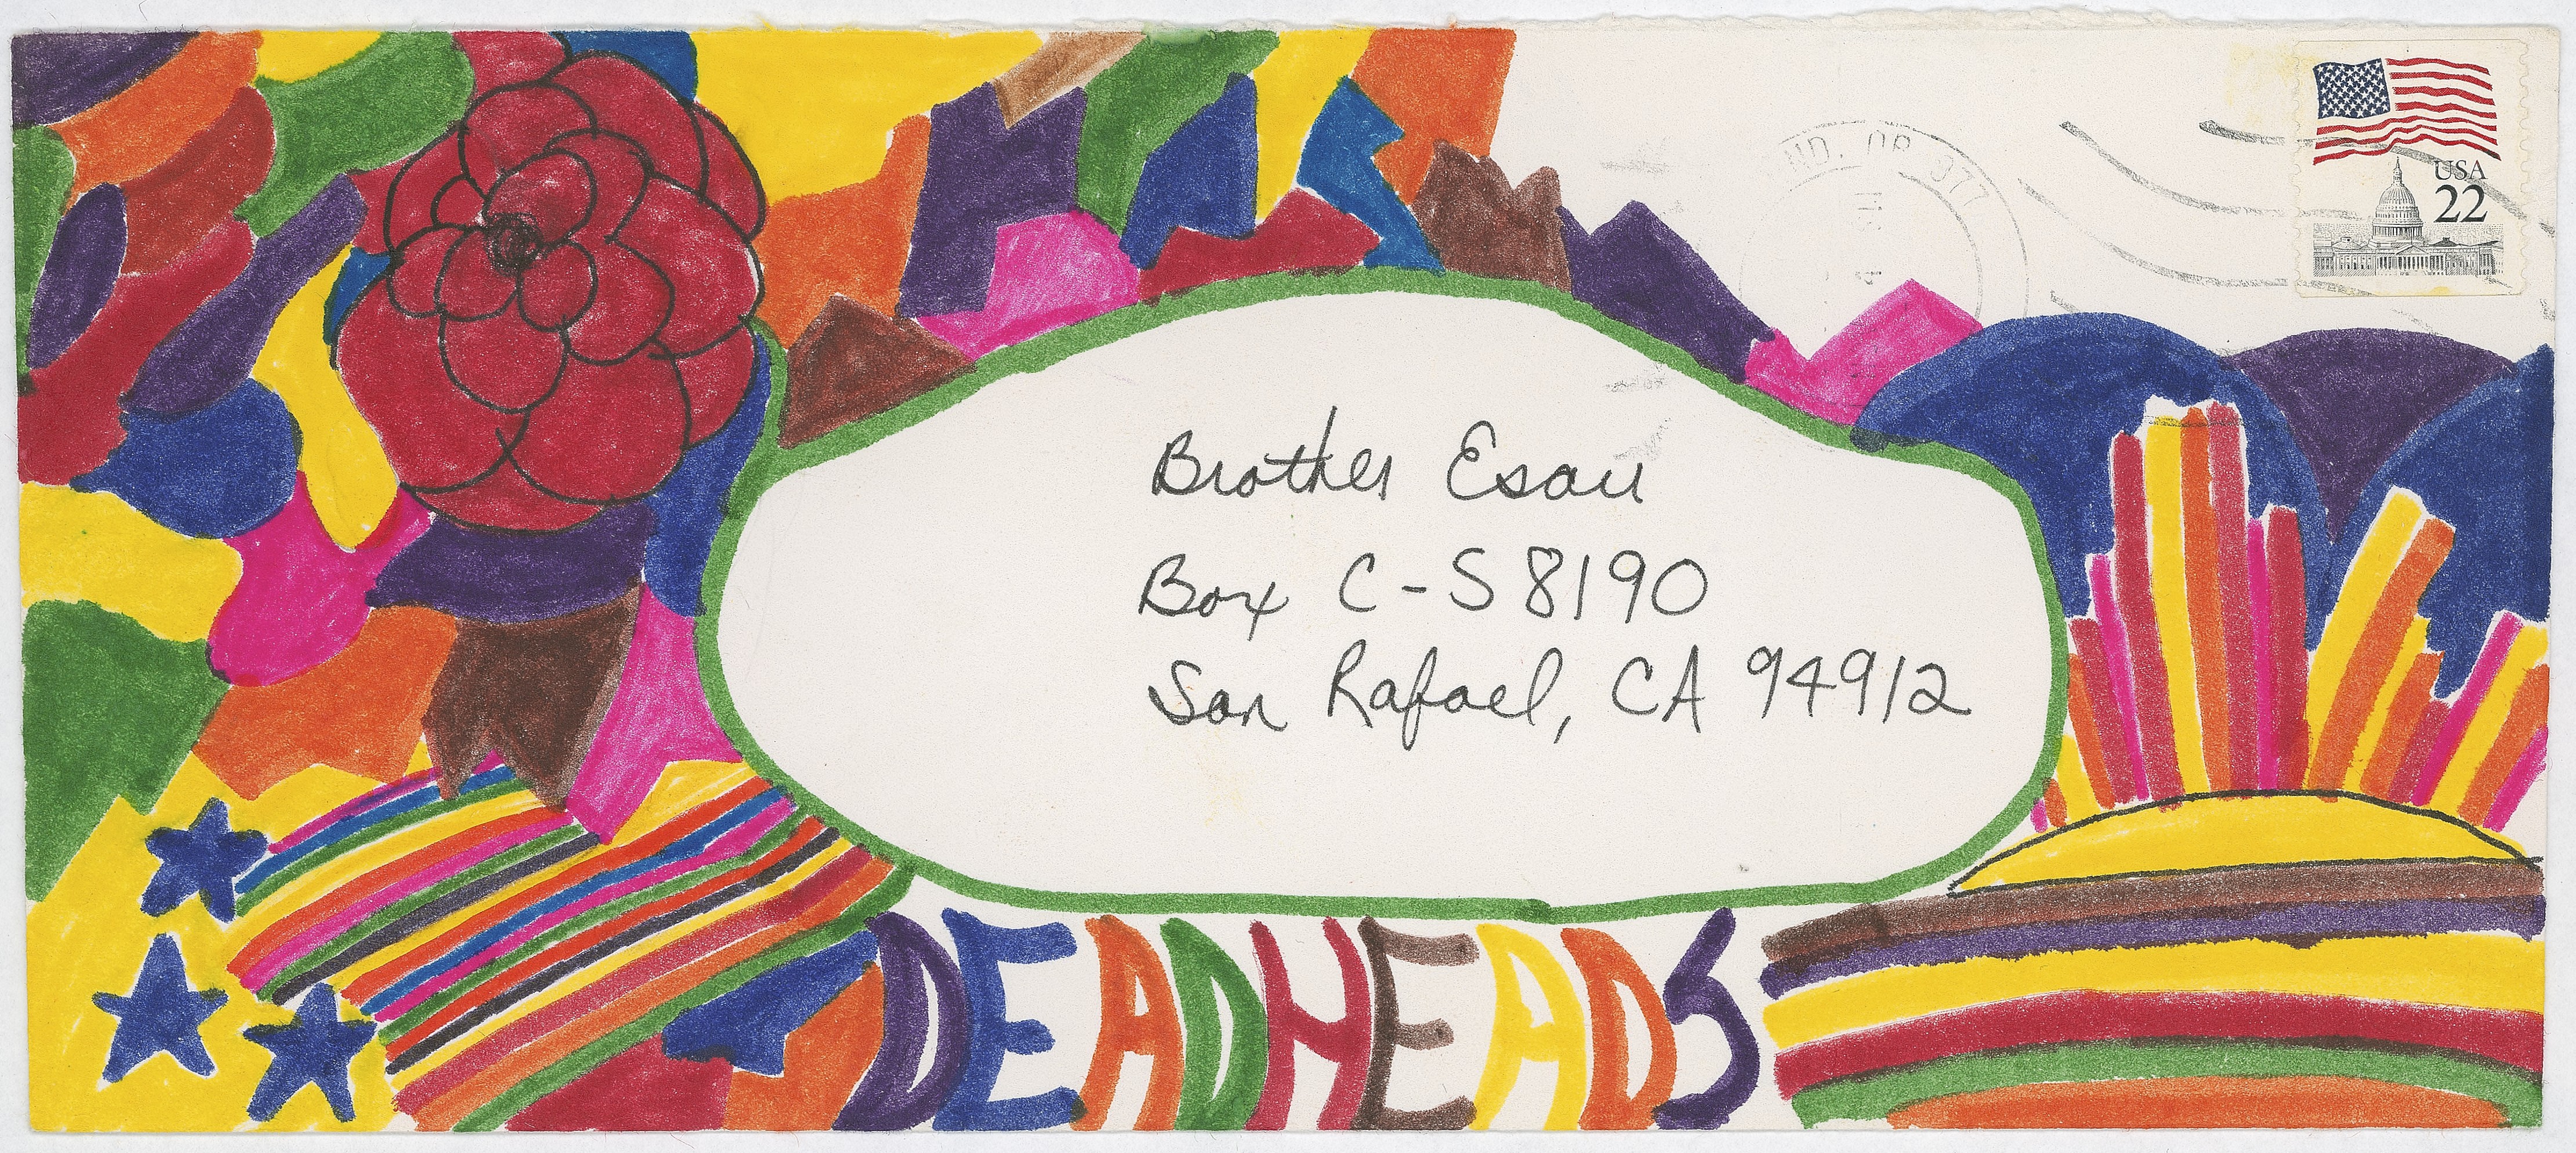 OR 977
USA
22
Brother Esau
Box C-S 8190
San Rafael, CA 94912
DEADHEADS